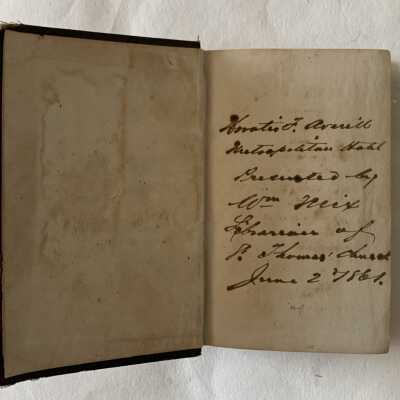 Horatio F. Averill
Metropolitan Hotel
Presented by
Wm Hix
Librarian of
St. Thomas' Church
June 2d 1861.